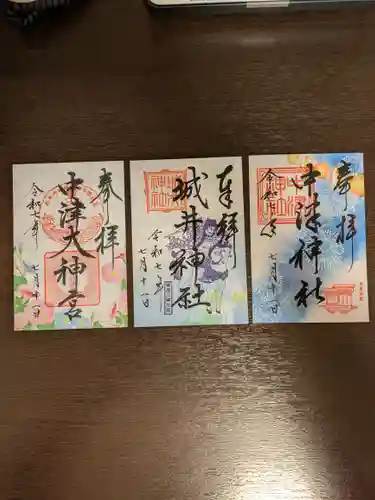 奉拝
中津大神宮
令和七年
七月十一日
奉拝
城井神社
令和七年
七月十一日
奉拝
中津神社
令和七年
七月十一日